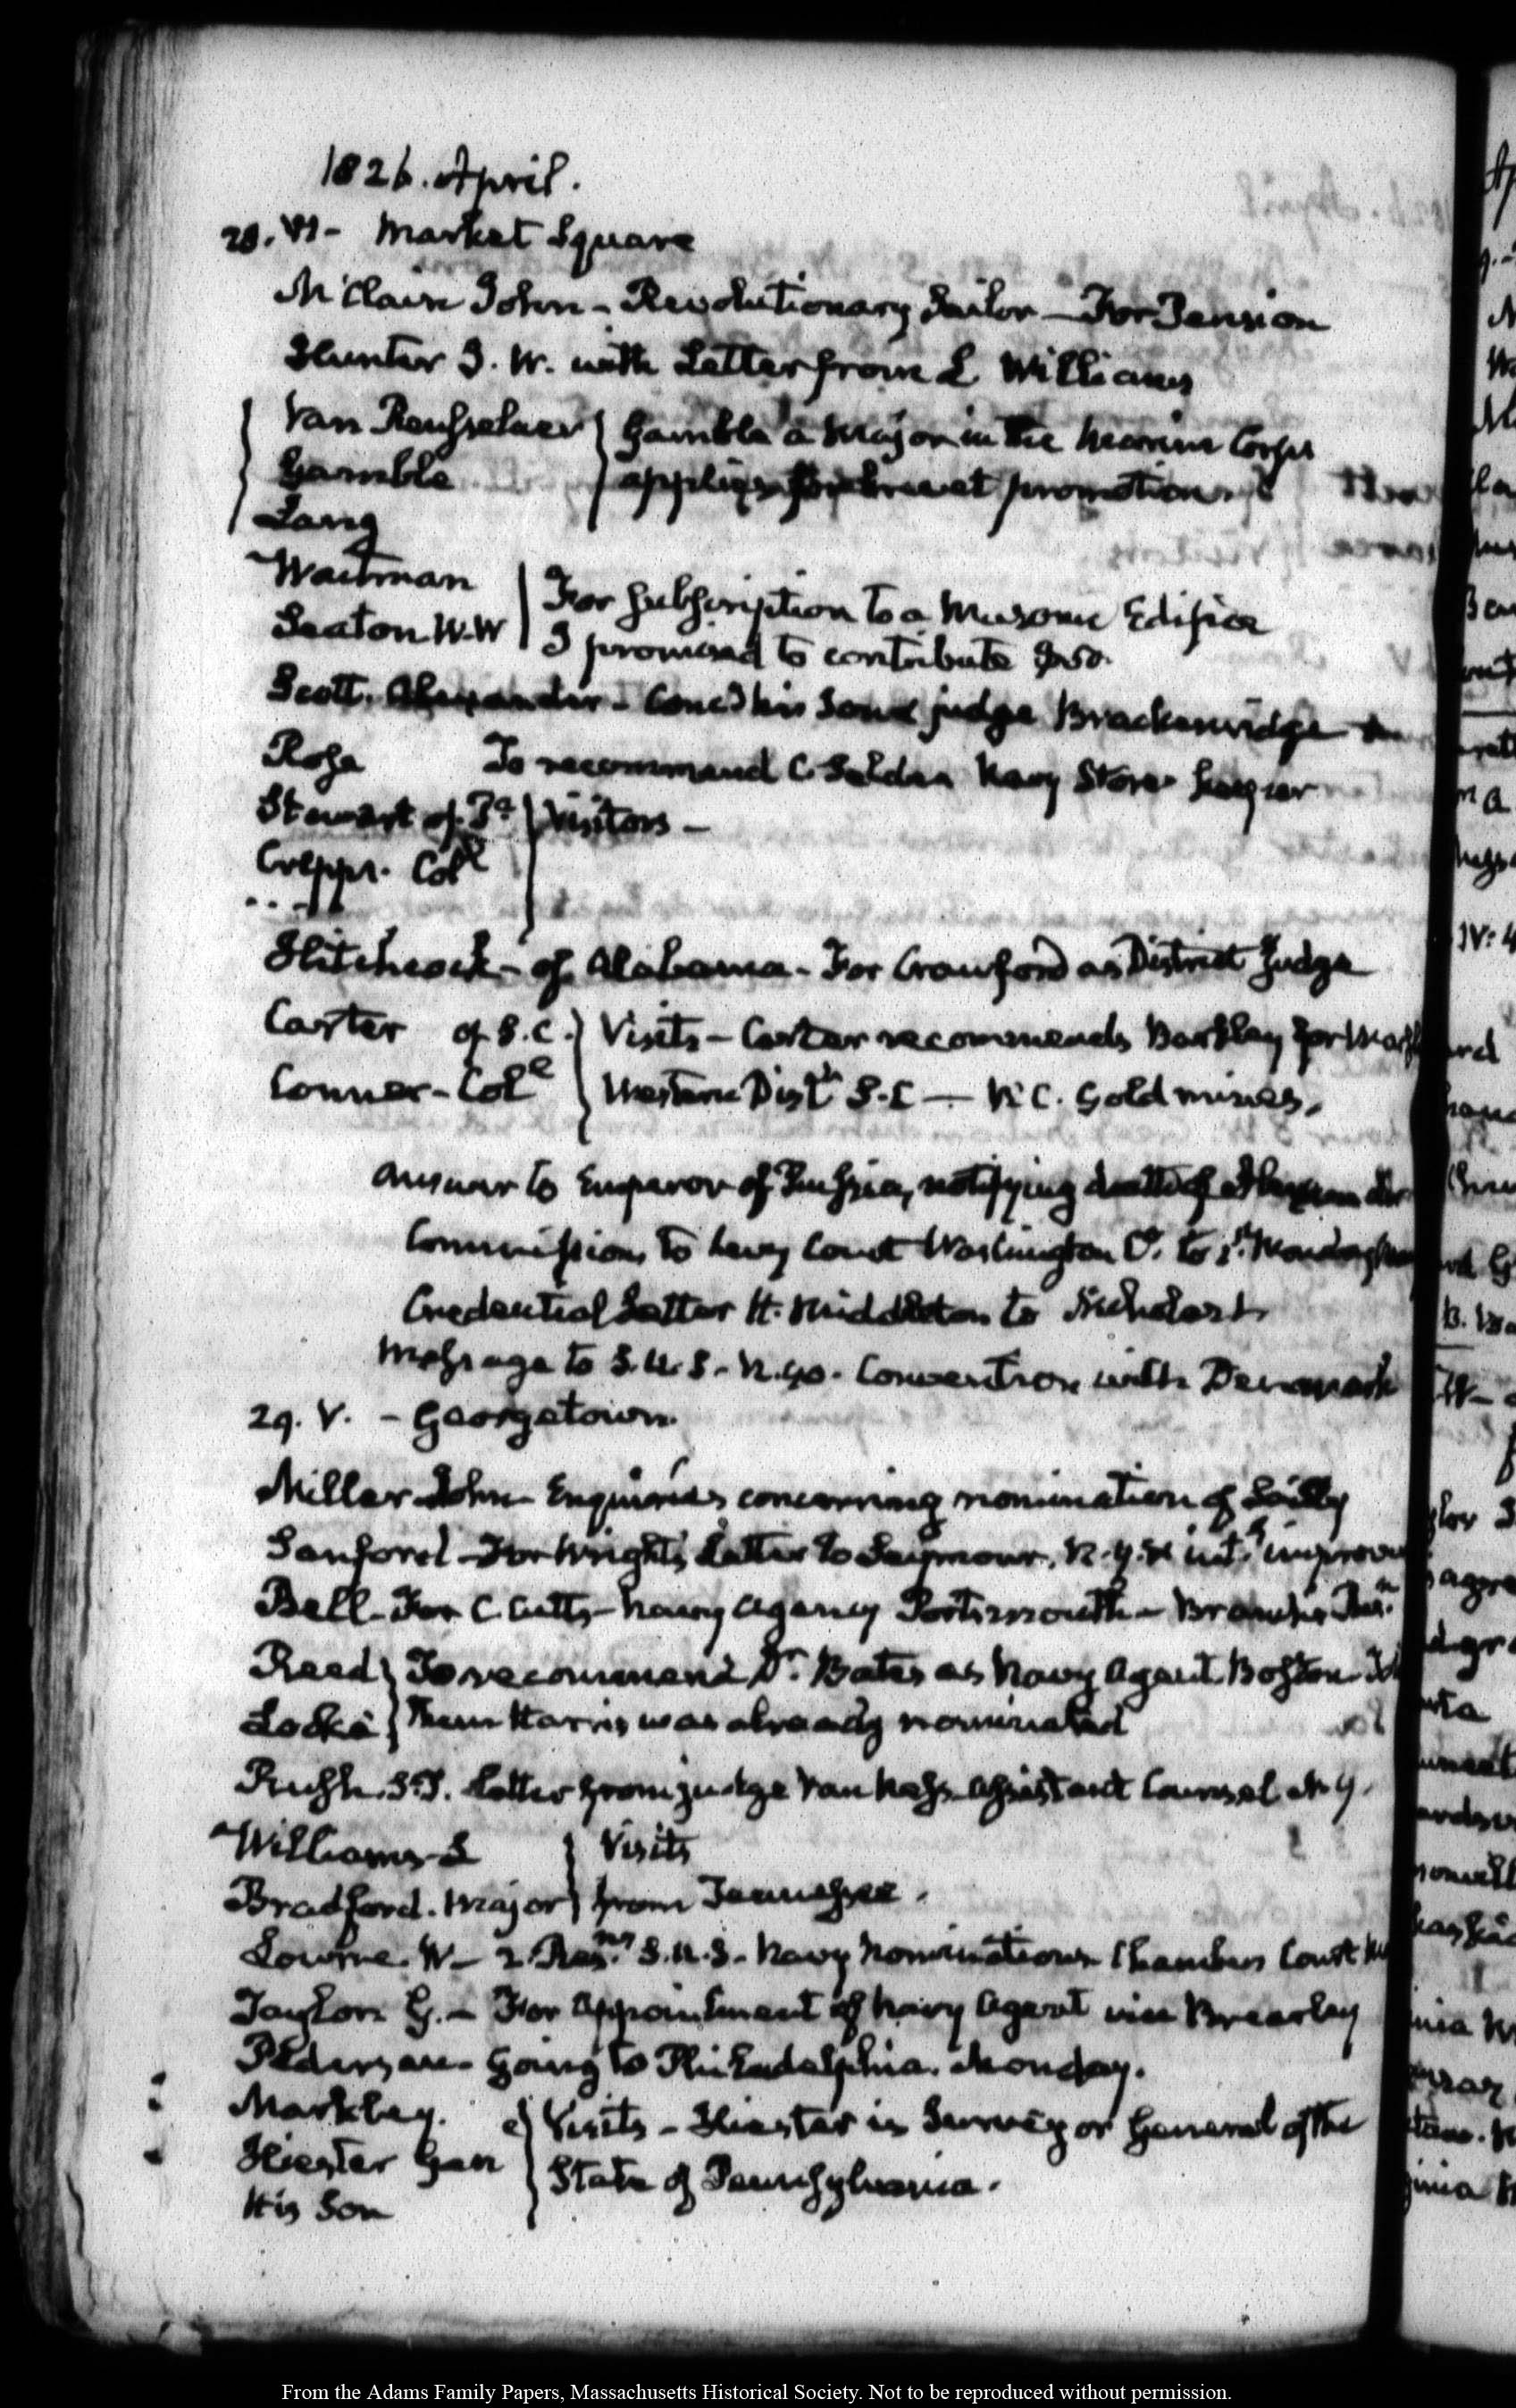 1826. April.
28. VI - Market Square
McClain John - Revolutionary Sailor - For Pension
Hunter J. W. with Letter from L Williams
Van Rensselaer Gamble a Major in the Marine Corps
Gamble applies for brevet promotion
Lang
Waterman For subscription to a Masonic Edifice
Seaton W. W I promised to contribute $50.
Scott. Alexander - judge Brackenridge
Ross To recommend C. Selden Navy Store keeper
Stewart of Pa Visitors -
Col.l
Hitchcock - of Alabama - For Crawford as District Judge
Carter of S. C. Visits - Carter recommends Barkley for
Conner - Col.l Western Dist.t S. C - N. C. Gold mines.
Answer to Emperor of Russia, notifying death of Alexander
Commission, to Levy Court Washington C.y to 1.st Monday
Credential Letter H. Middleton to Nicholas 1
Message to S. U. S. - N. 40. Convention with Denmark
29. V. - Georgetown.
Miller John - Enquiries concerning nomination of
Sanford - For Wright's Letter to Seymour. N. Y.
Bell - For C. Cutts - Navy Agency Portsmouth -
Reed To recommend Dr. Bates as Navy Agent. Boston
Locke Them Harris was already nominated
Rush. Letter from judge Van Ness - Assistant Counsel N. Y.
Williams - L Visits
Bradford. Major from Tennessee.
Lowrie. W - 2. Res.ns S. U. S - Navy Nominations Chambers Court
Taylor. G. - For Appointment of Navy Agent vice Brearley
Pedersen - Going to Philadelphia. Monday.
Markley. Visits - Hiester is Surveyor General of the
Hiester Gen State of Pennsylvania.
His Son
From the Adams Family Papers, Massachusetts Historical Society. Not to be reproduced without permission.